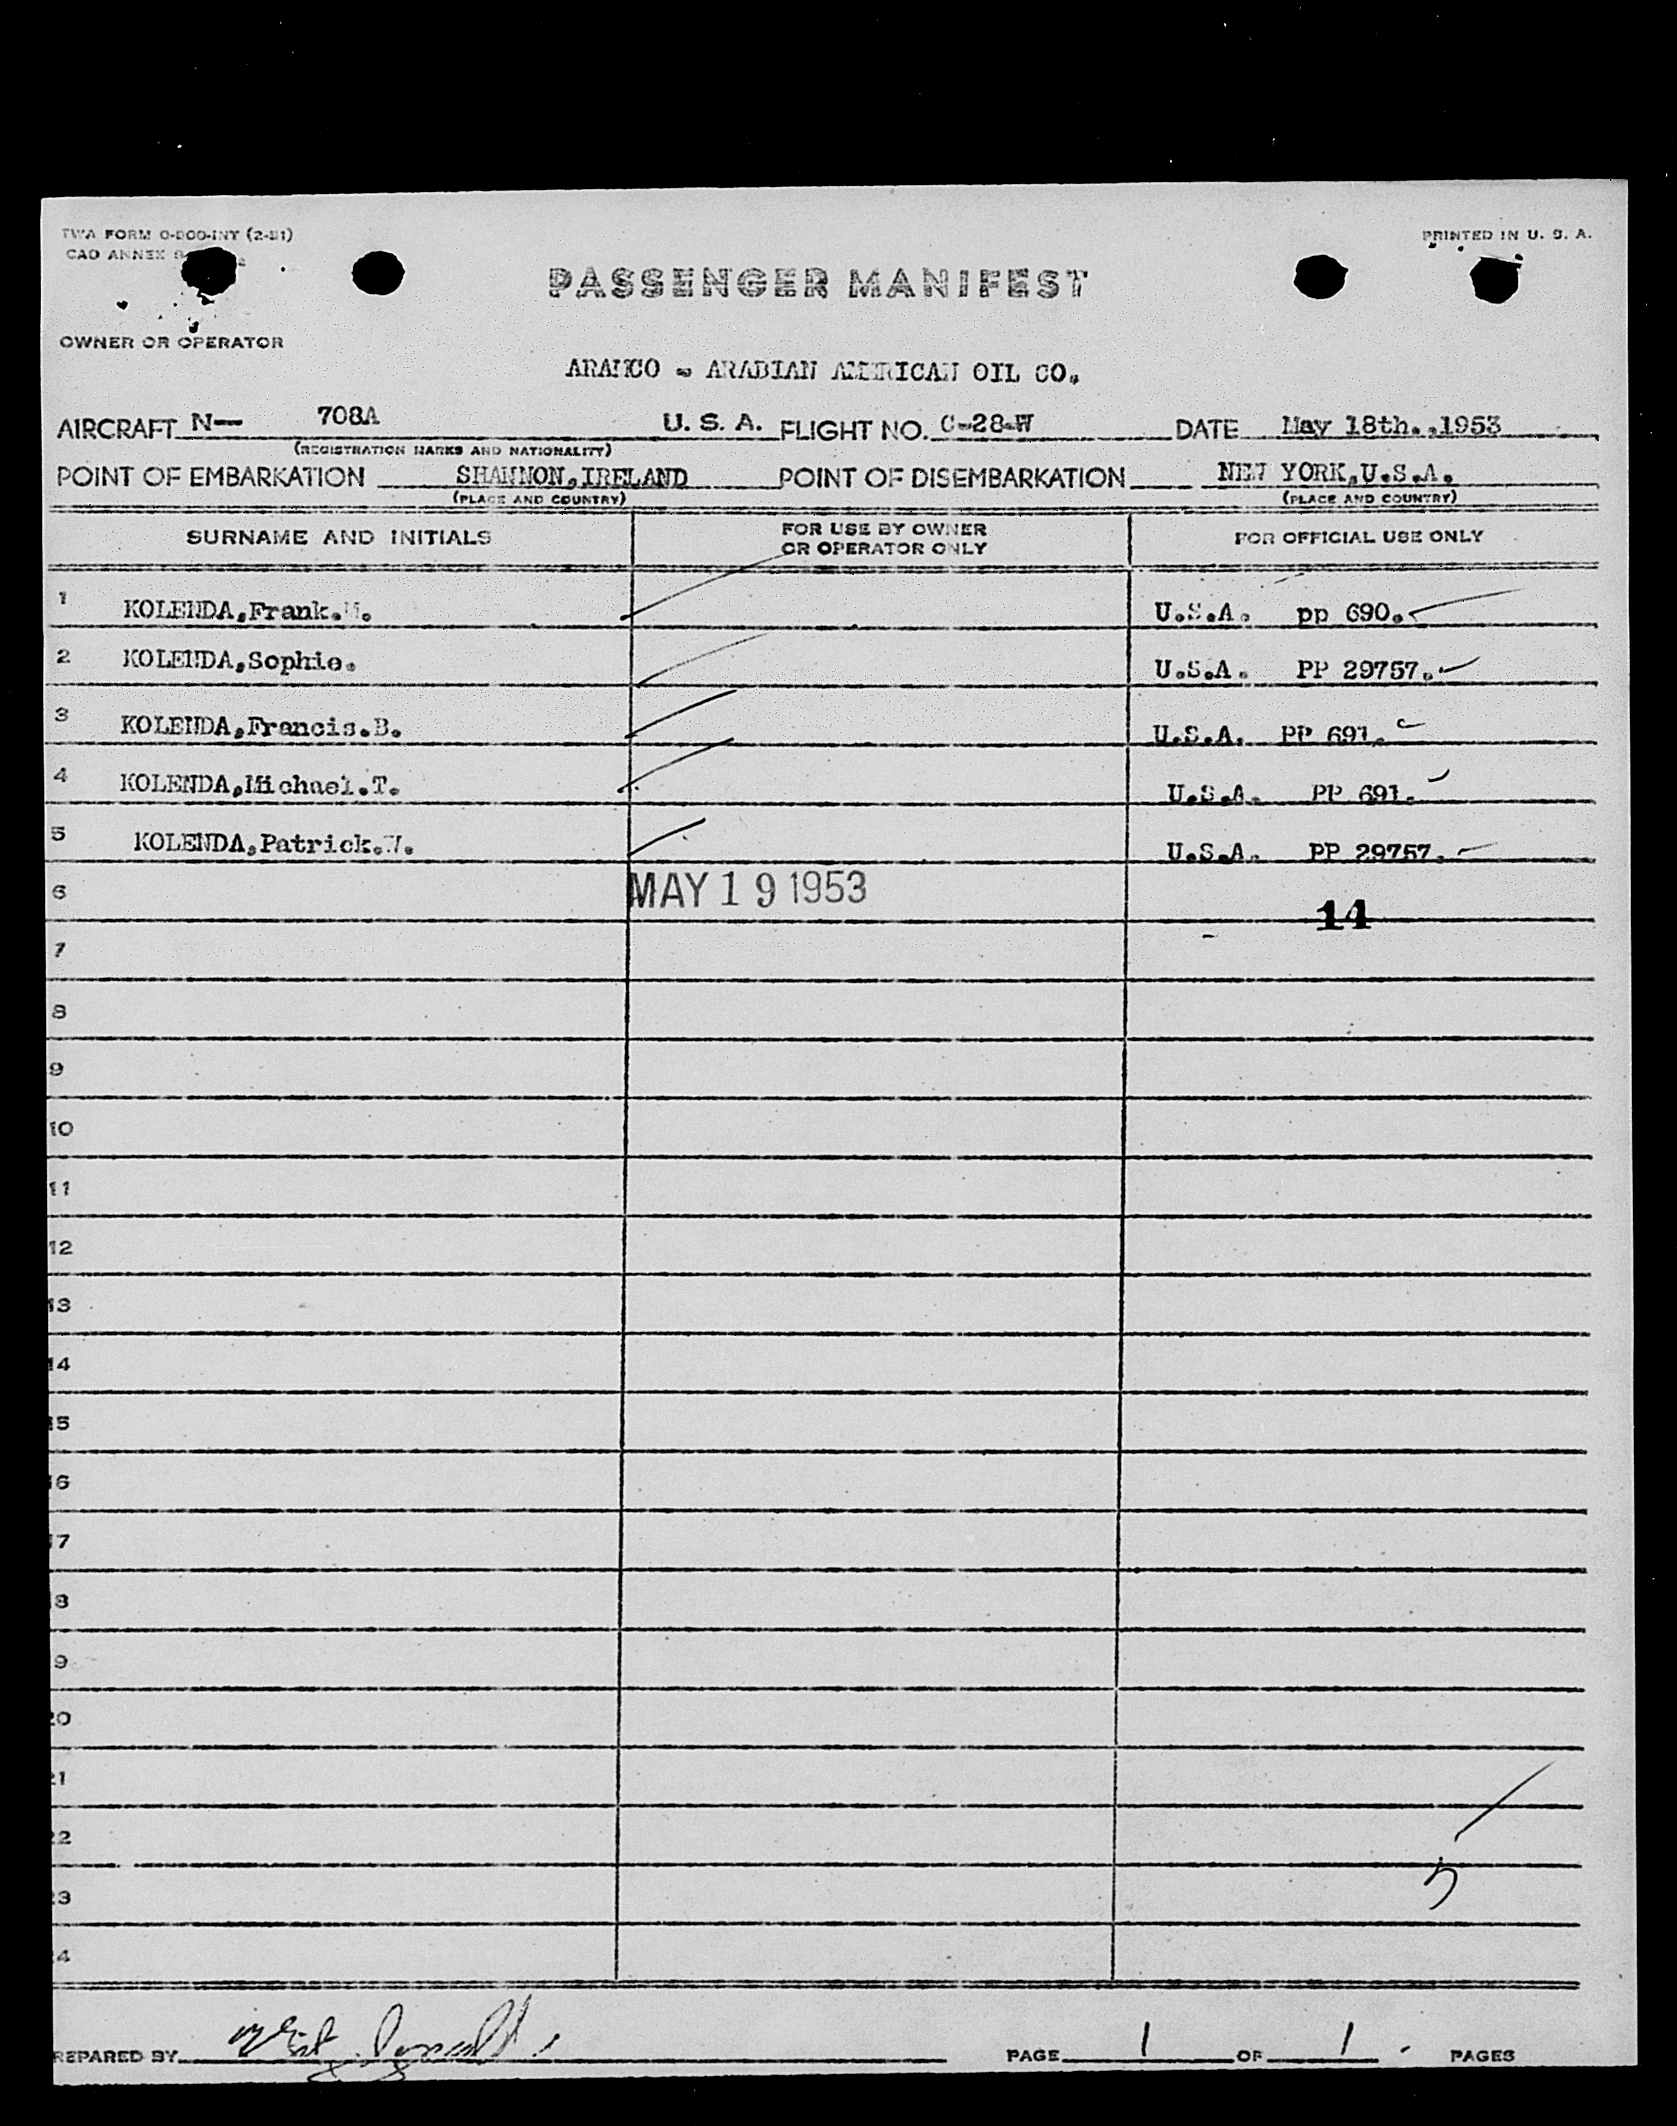 TWA FORM O-800-INT (2-51)
PRINTED IN U. S. A.
CAO ANNEX
PASSENGER MANIFEST
OWNER OR OPERATOR
ARAMCO - ARABIAN AMERICAN OIL CO.
AIRCRAFT N- 708A U. S. A. FLIGHT NO. C-28-W DATE May 18th.,1953
(REGISTRATION MARKS AND NATIONALITY)
POINT OF EMBARKATION SHANNON,IRELAND POINT OF DISEMBARKATION NEW YORK,U.S.A.
(PLACE AND COUNTRY) (PLACE AND COUNTRY)
SURNAME AND INITIALS FOR USE BY OWNER OR OPERATOR ONLY FOR OFFICIAL USE ONLY
1 KOLENDA,Frank. U.S.A. pp 690.
2 KOLENDA,Sophie. U.S.A. PP 29757.
3 KOLENDA,Francis.B. U.S.A. PP 691.
4 KOLENDA,Michael.T. U.S.A. PP 691.
5 KOLENDA,Patrick.W. U.S.A. PP 29757.
6 MAY 19 1953 14
7
8
9
10
11
12
13
14
15
16
17
18
19
20
21
22
23 5
24
PREPARED BY PAGE 1 OF 1 PAGES